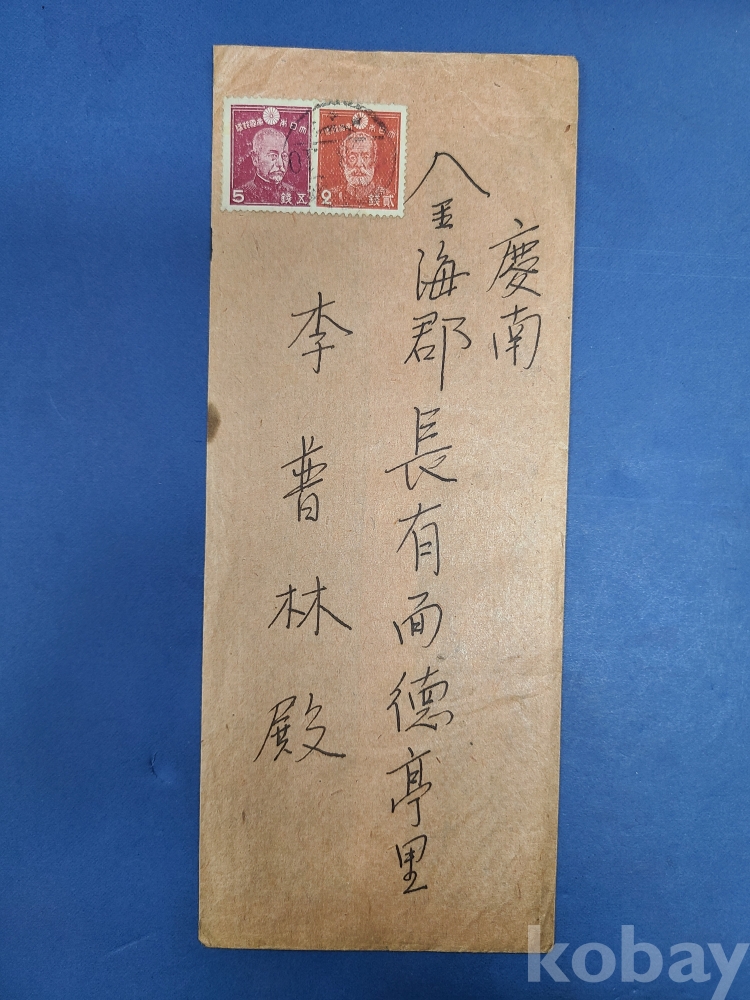 慶南
金海郡長有面德亭里
李普林殿
大日本帝國郵便
5 五錢
大日本帝國郵便
2 貳錢
kobay